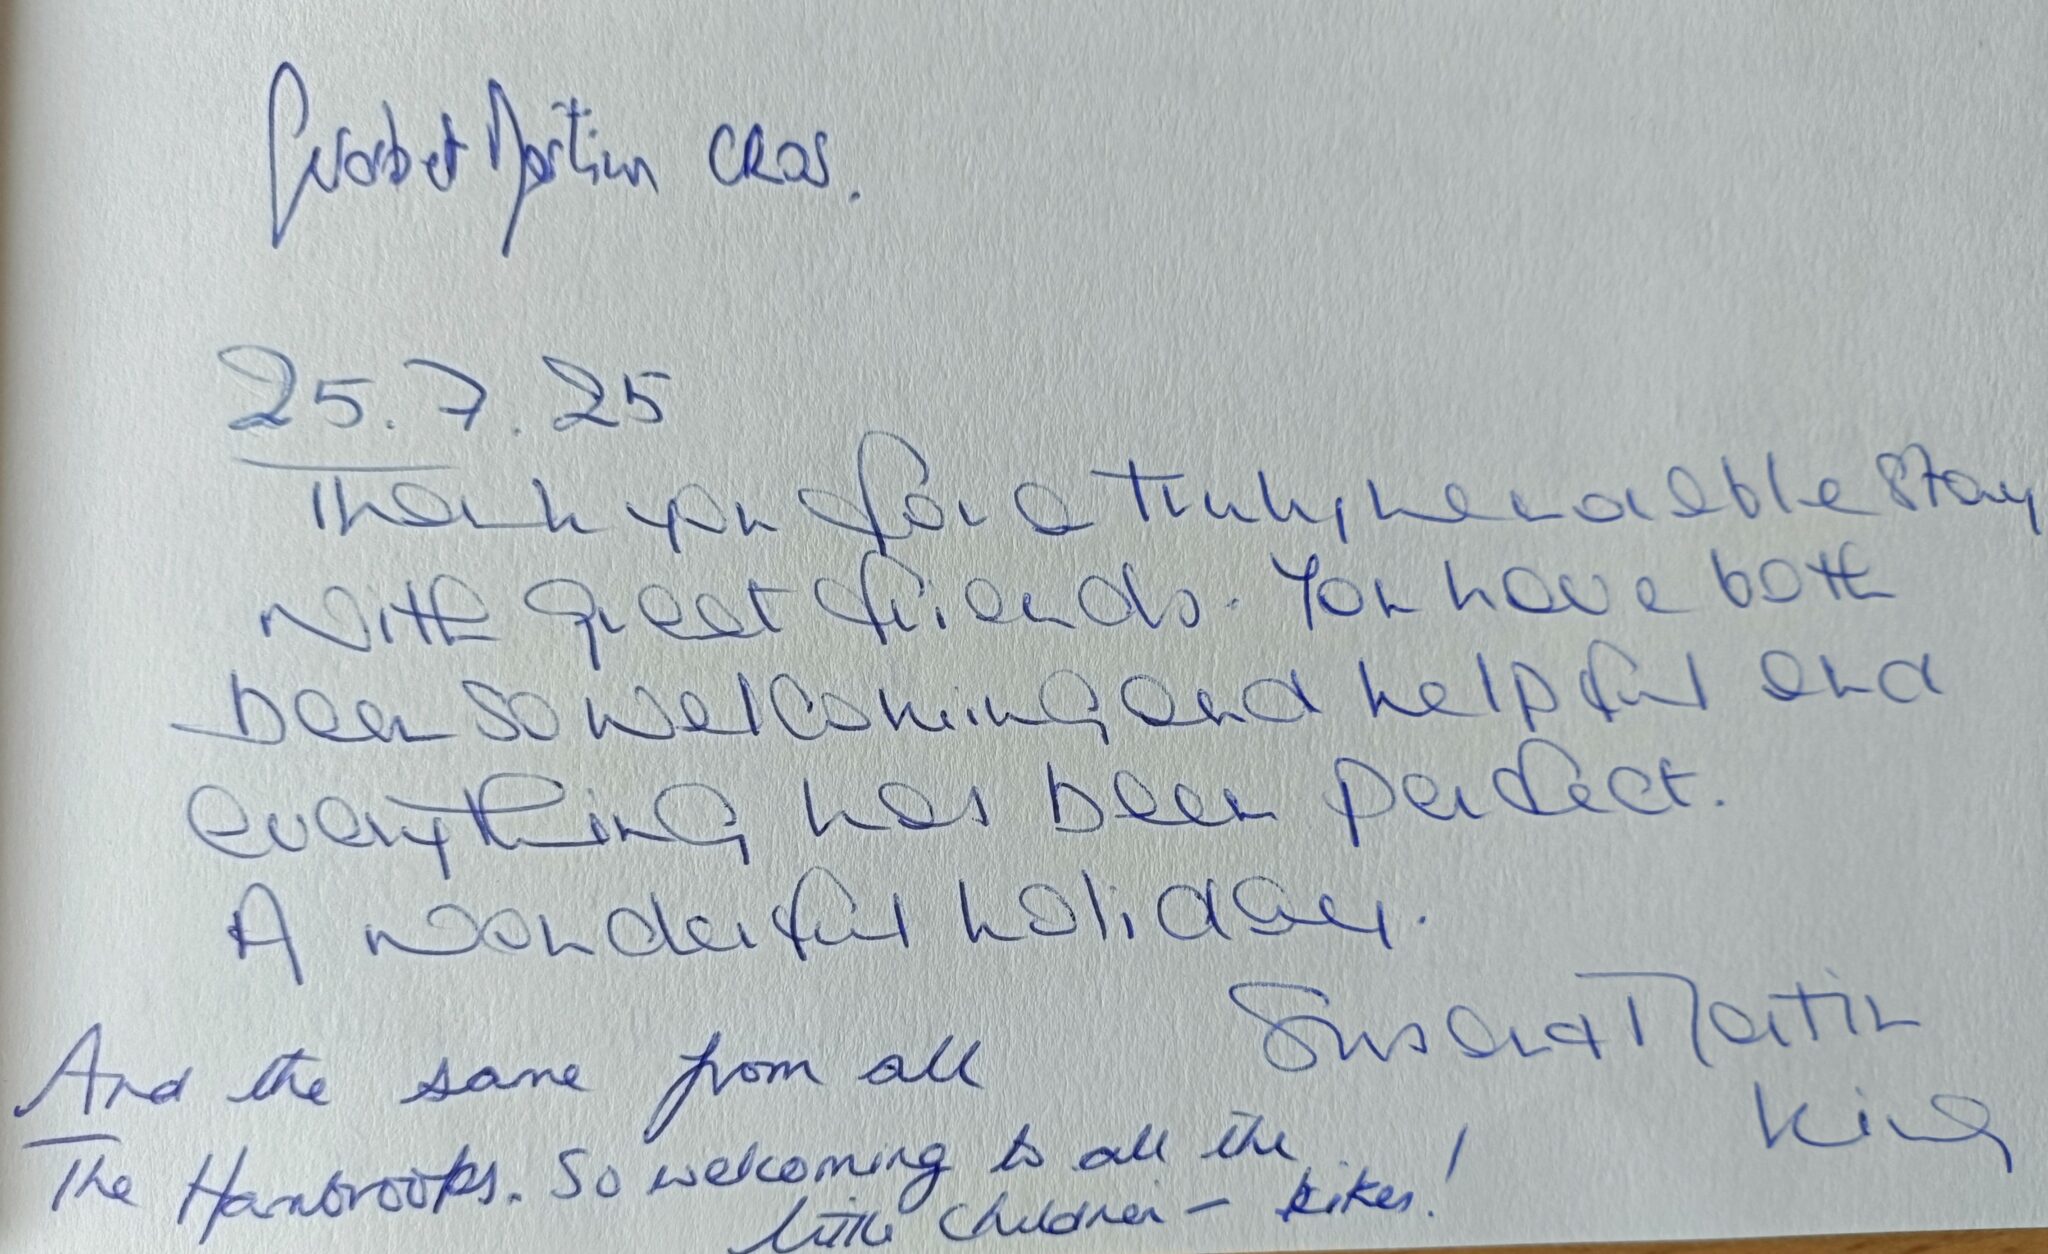 Norbert Martin CROS.
25.7.25
Thank you for a truly memorable stay
with great friends. You have both
been so welcoming and helpful and
everything has been perfect.
A wonderful holiday.
Sus and Martin
King
And the same from all
The Hambrooks. So welcoming to all the
little children -